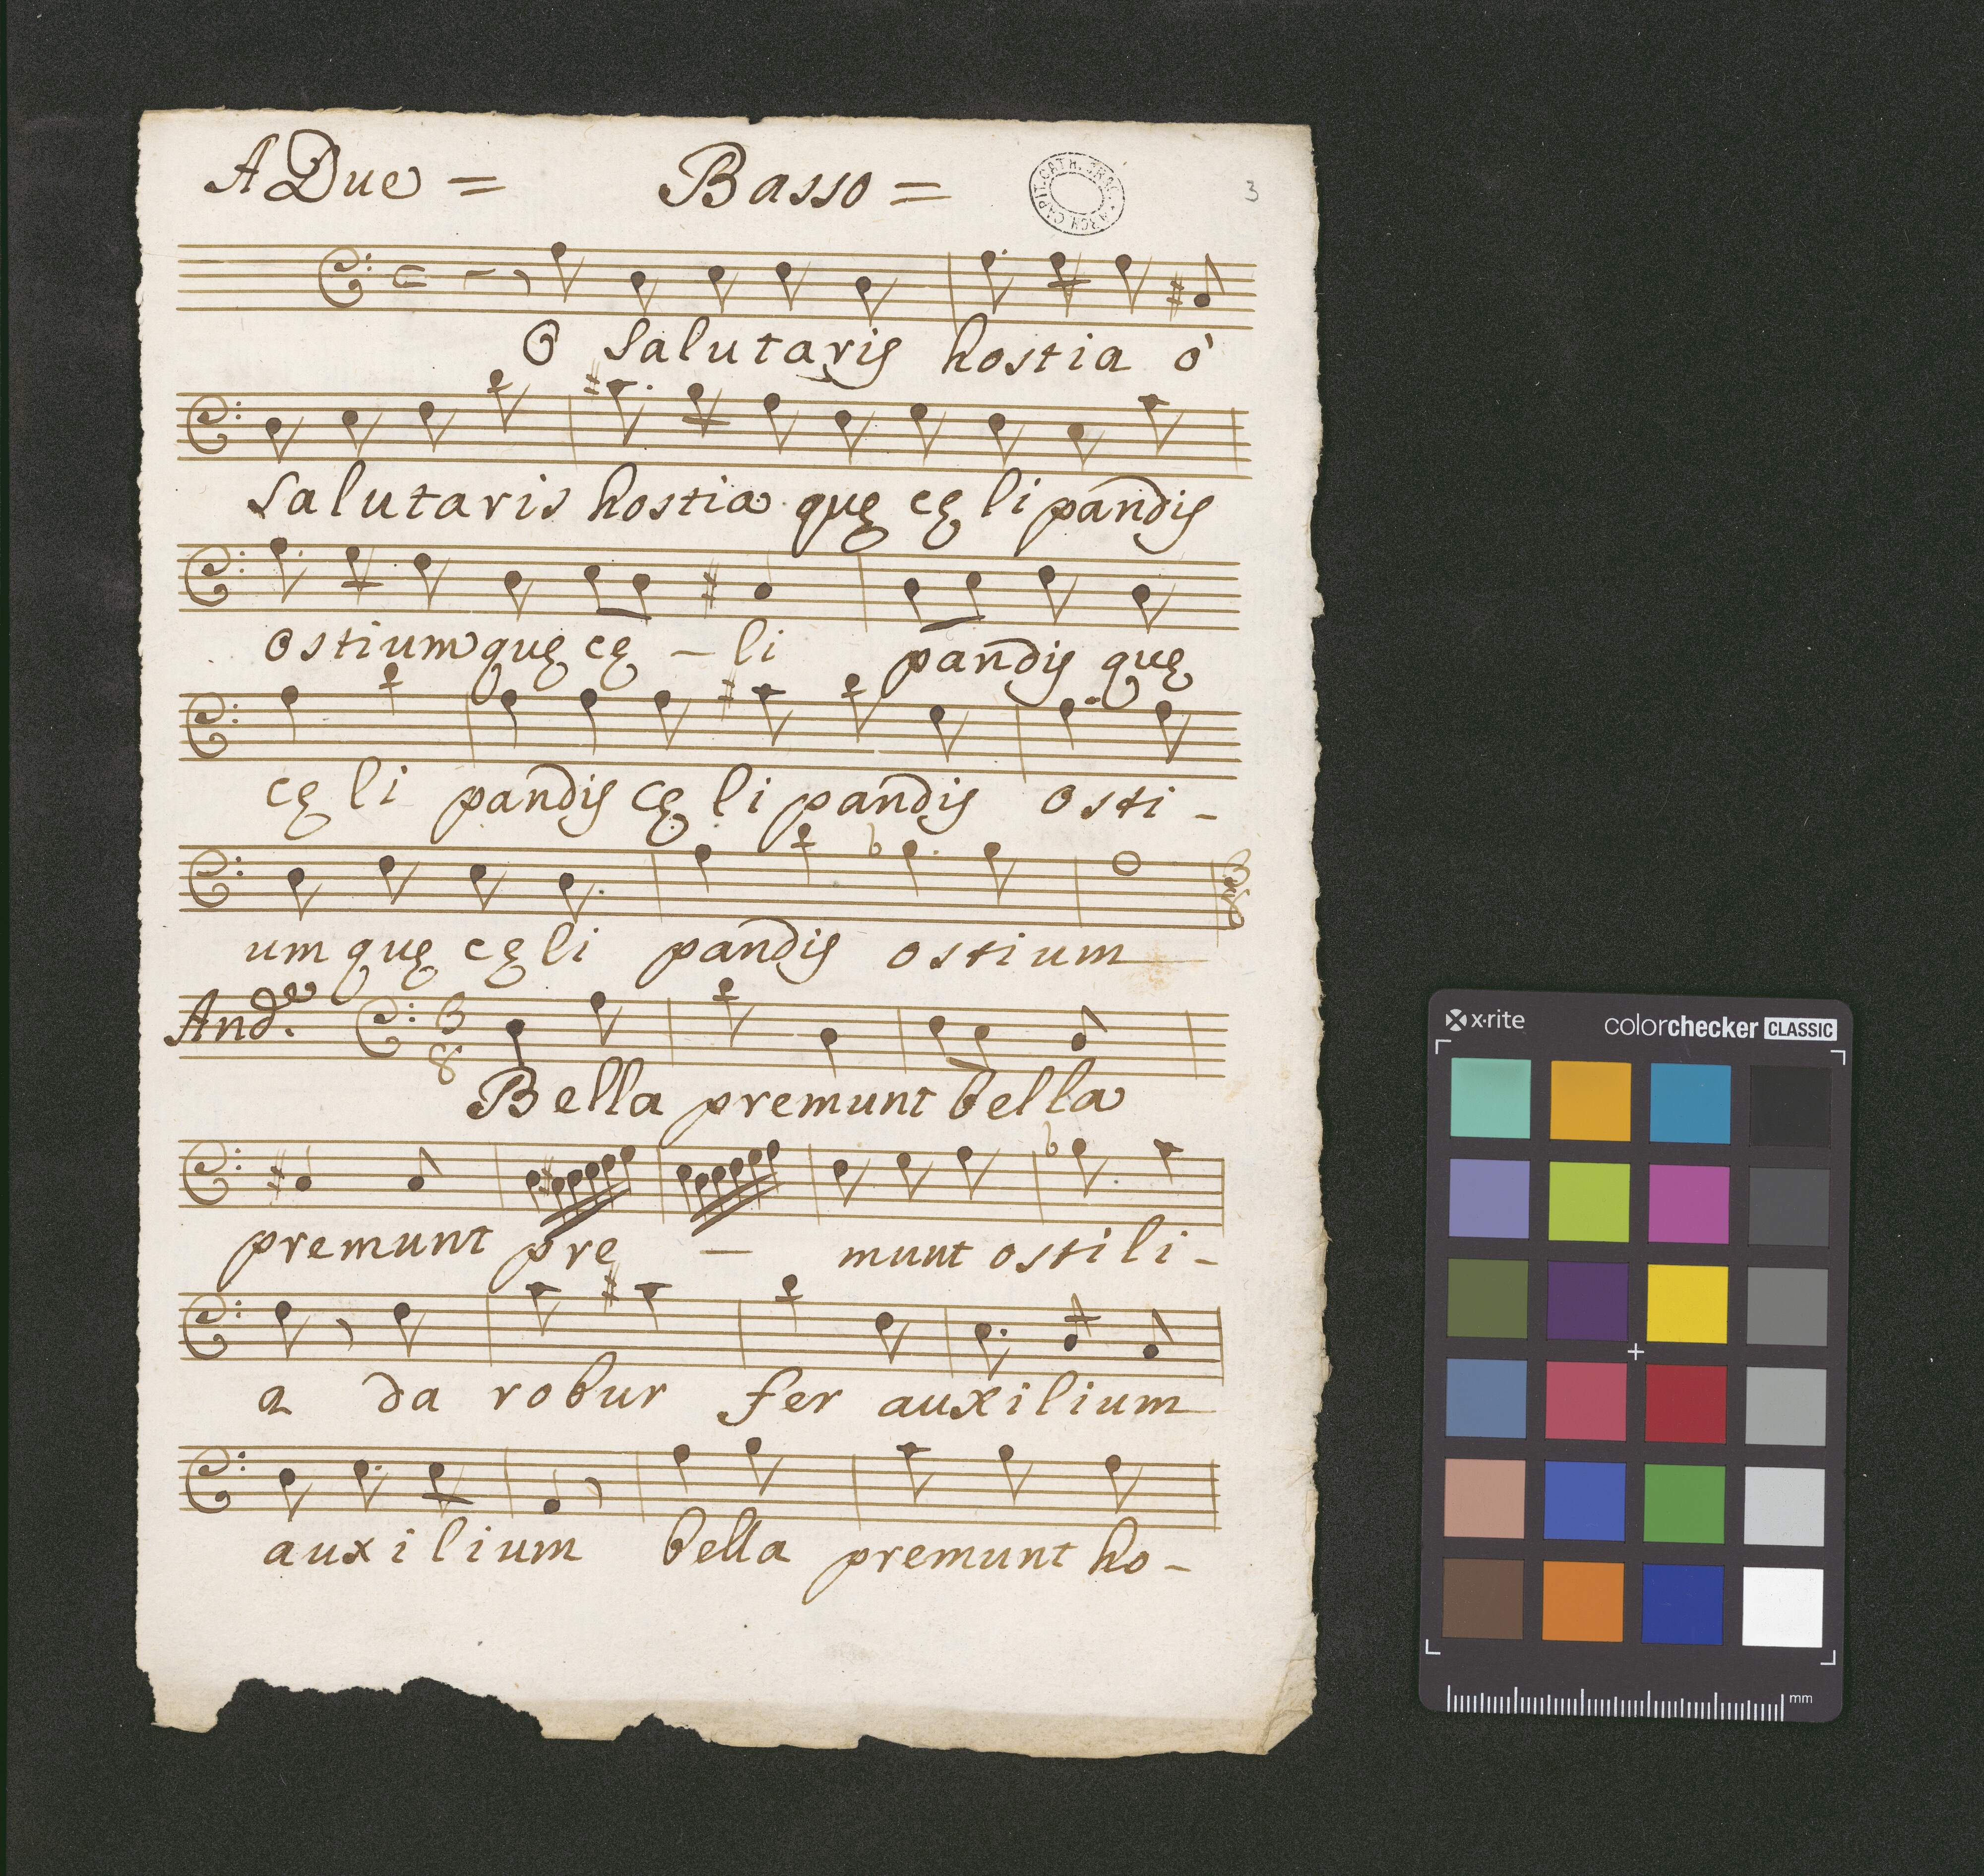 A Due = Basso = ARCH. CAPIT. CATH. 3
O salutaris hostia o'
salutaris hostia quę cęli pandis
ostium quę cę – li pandis quę
cęli pandis cęli pandis osti -
um quę cęli pandis ostium
And.e 3 8 Bella premunt bella
premunt pre – munt ostili -
a da robur fer auxilium
auxilium bella premunt ho -
x-rite colorchecker CLASSIC
mm